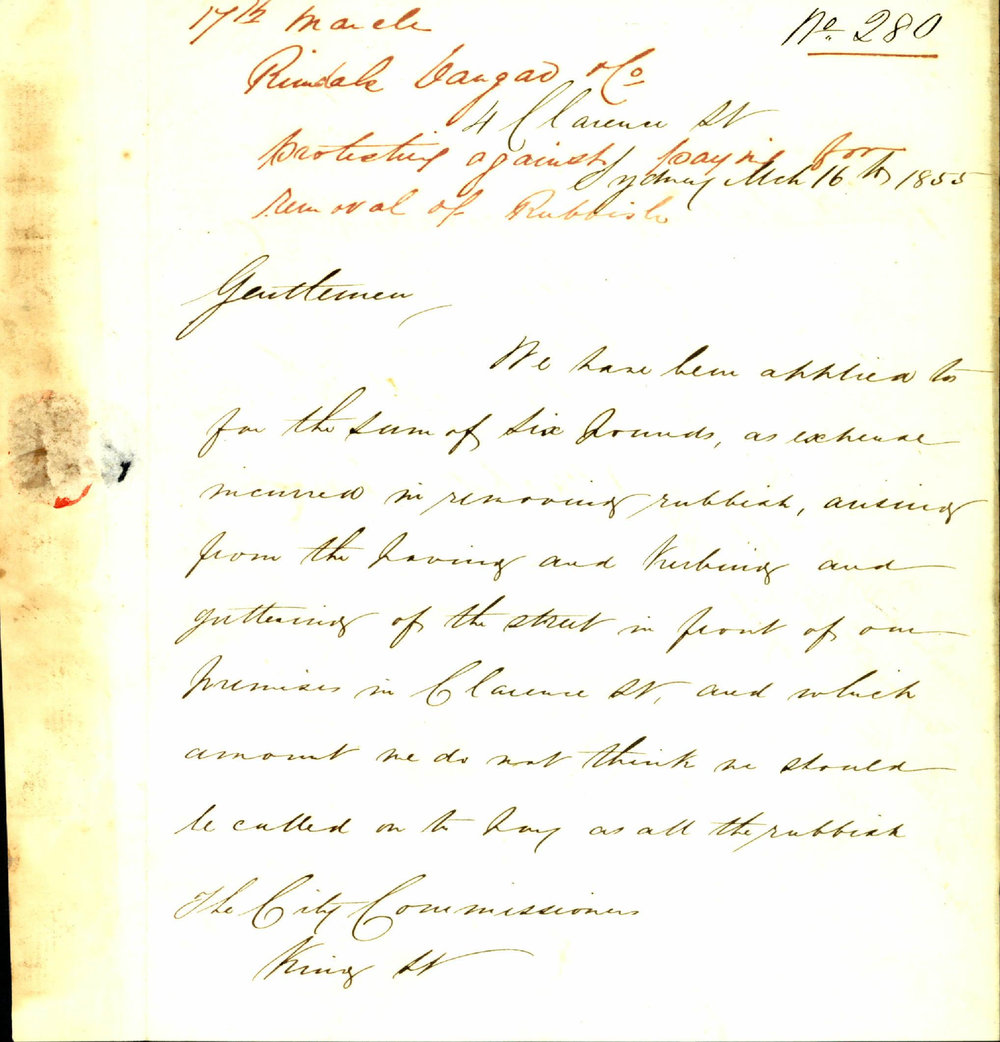 17th March
No. 280
& Co
4 Clarence St
protesting against paying for
Sydney Mch 16th 1855
removal of Rubbish
Gentlemen,
We have been applied to
for the sum of six pounds, as expense
incurred in removing rubbish, arising
from the paving and kerbing and
guttering of the street in front of our
premises in Clarence St, and which
amount we do not think we should
be called on to pay as all the rubbish
The City Commissioners
King St